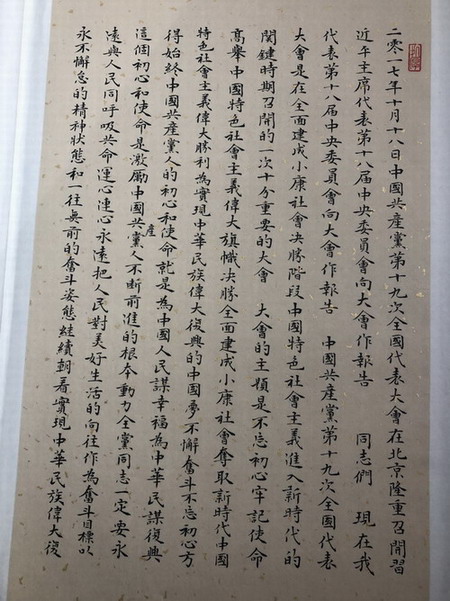 二零一七年十月十八日中國共產黨第十九次全國代表大會在北京隆重召開習
近平主席代表第十八届中央委員會向大會作報告 同志們 現在我
代表第十八届中央委員會向大會作報告 中國共產黨第十九次全國代表
大會是在全面建成小康社會决勝階段中國特色社會主義進入新時代的
関鍵時期召開的一次十分重要的大會 大會的主題是不忘初心牢記使命
高舉中國特色社會主義偉大旗幟决勝全面建成小康社會奪取新時代中國
特色社會主義偉大勝利為實現中華民族偉大復興的中國夢不懈奮斗不忘初心方
得始終中國共產黨人的初心和使命就是為中國人民謀幸福為中華民謀復興
這個初心和使命是激勵中國共產黨人不断前進的根本動力全黨同志一定要永
遠與人民同呼吸共命運心連心永遠把人民對美好生活的向往作為奮斗目標以
永不懈怠的精神狀態和一往無前的奮斗姿態継續朝着實現中華民族偉大復